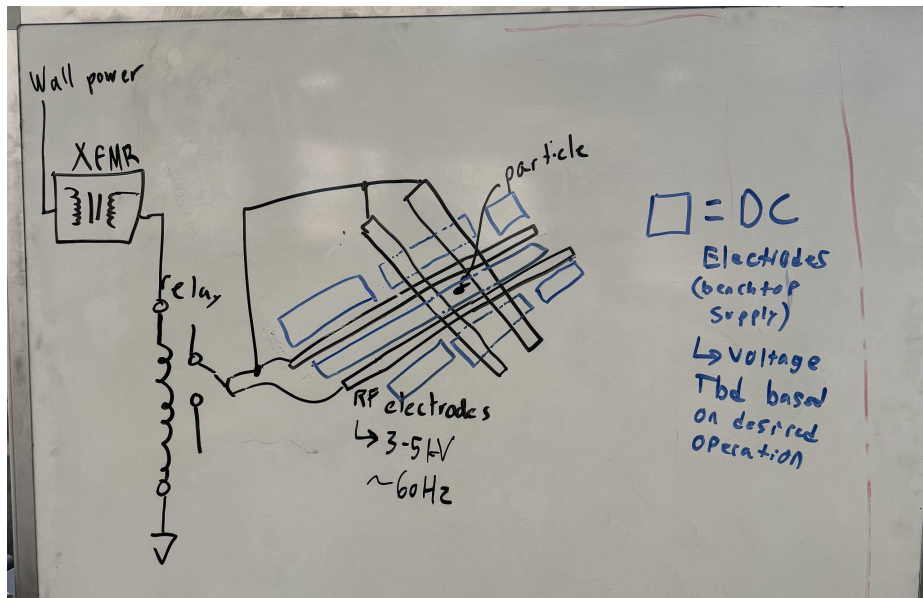 Wall power
XFMR
relay
particle
RF electrodes
↳ 3-5 kV
~60Hz
□ = DC
Electrodes
(benchtop
supply)
↳ Voltage
Tbd based
on desired
operation